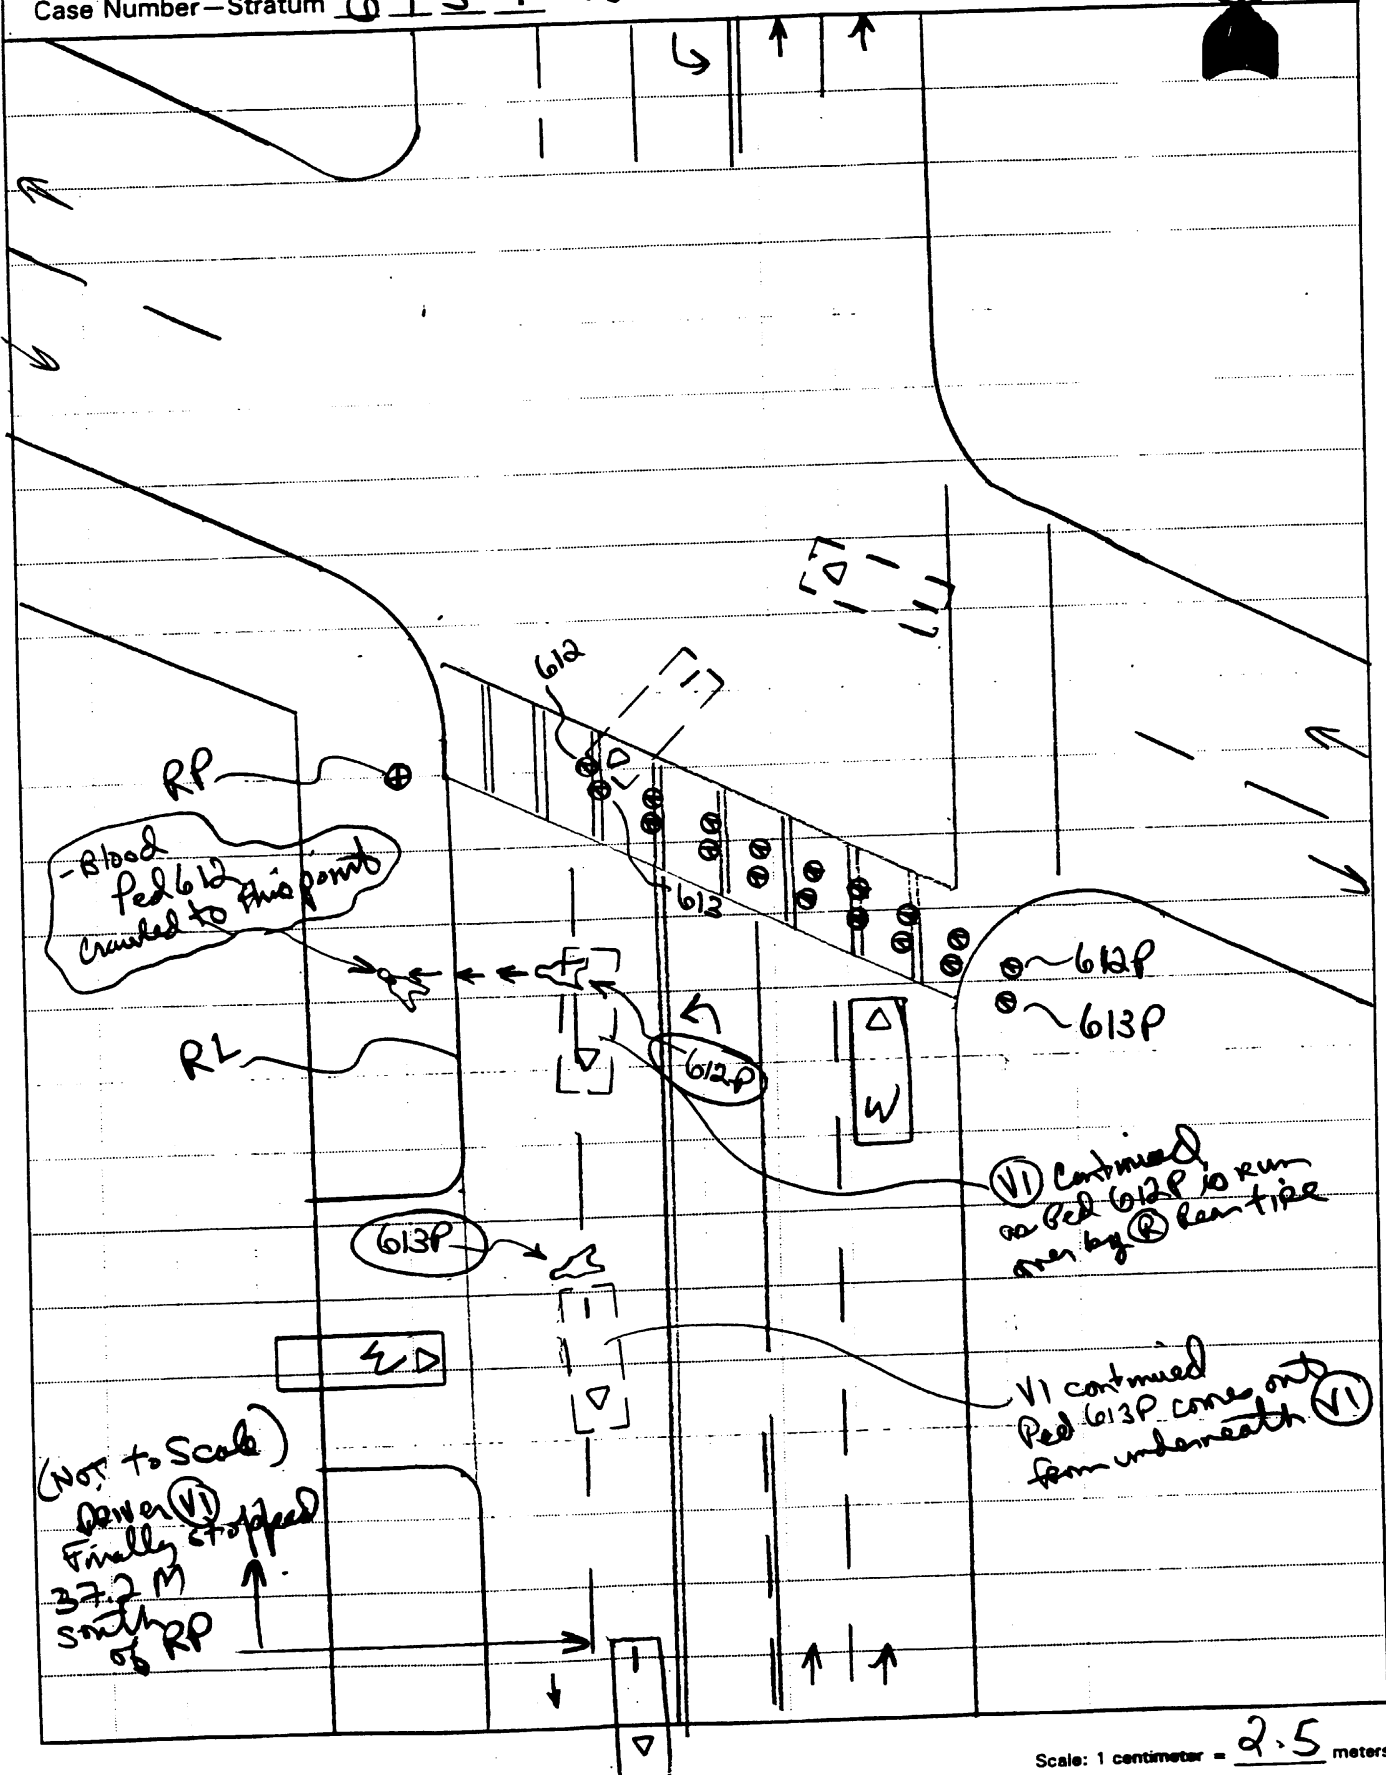 Case Number—Stratum
612
RP
- Blood
Ped 612
crawled to this point
613
612P
613P
RL
612P
W
V1 continued
as Ped 612P is run
over by R Rear tire
613P
W
V1 continued
Ped 613P comes out
from underneath V1
(Not to Scale)
Driver V1
Finally stopped
37.2 M
South
of RP
1
Scale: 1 centimeter = 2.5 meters